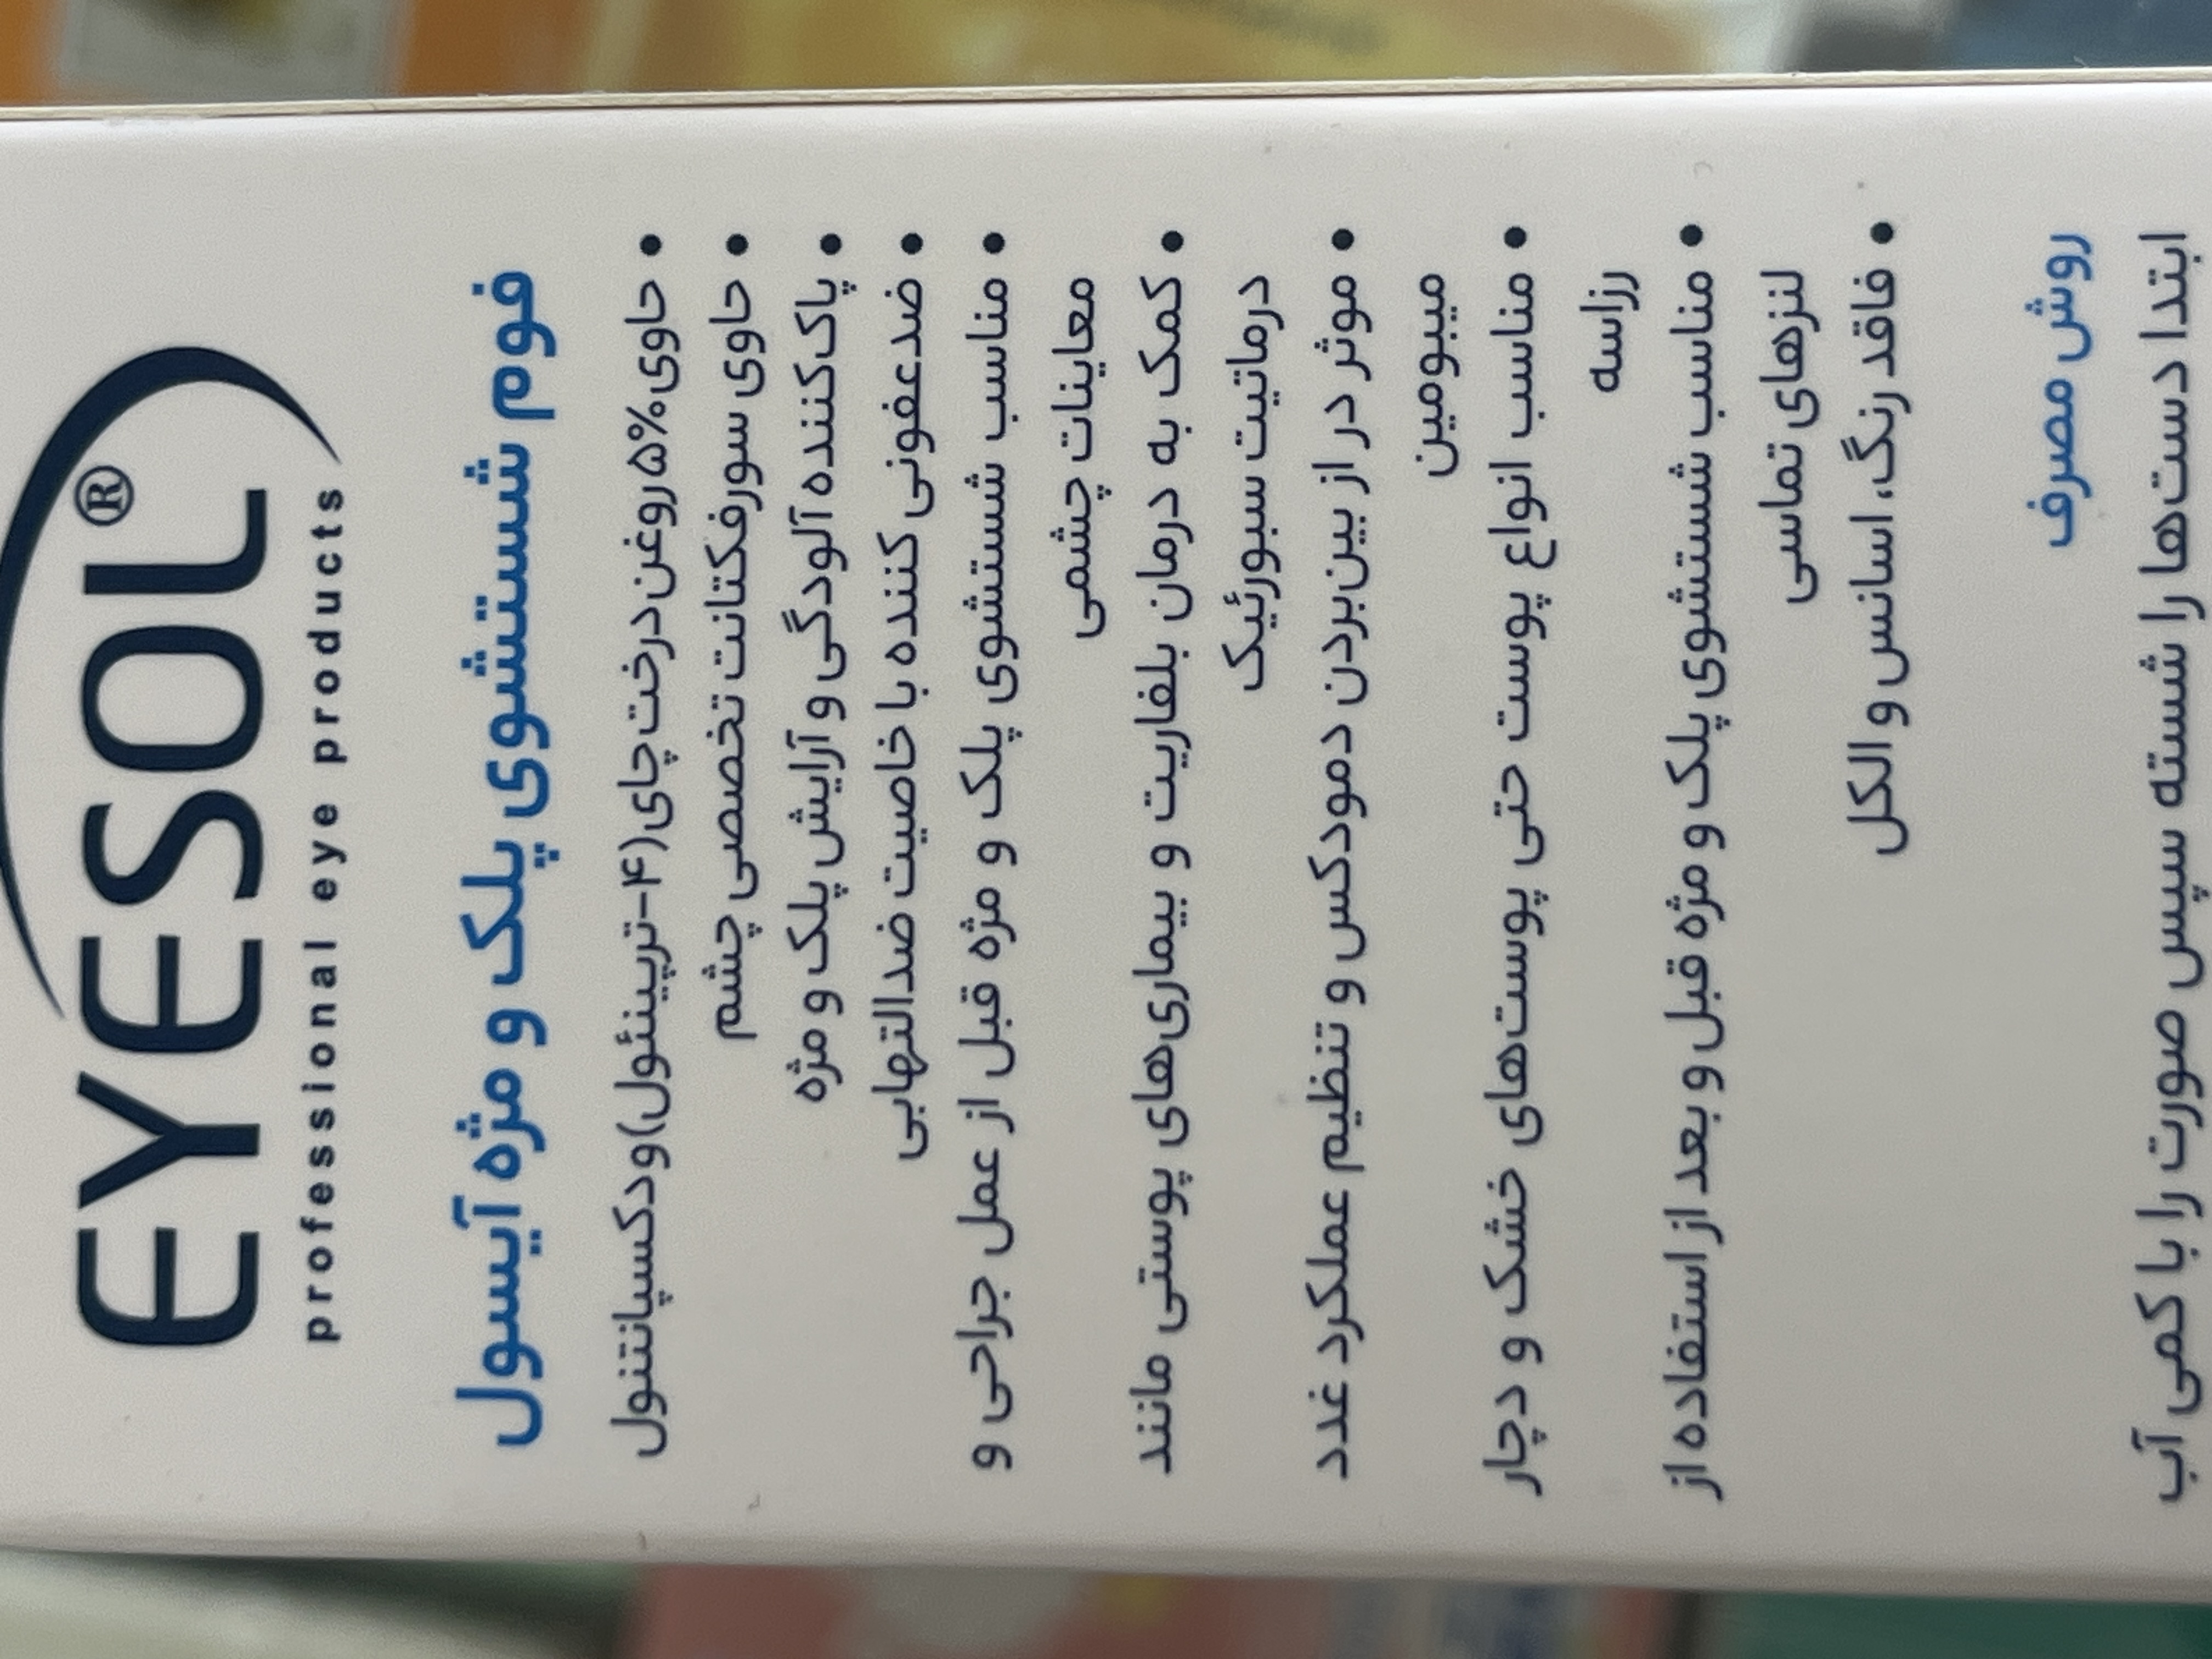 EYESOL®
professional eye products
فوم شستشوی پلک و مژه آیسول
• حاوی ۵% روغن درخت چای (۴-ترپینئول) و دکسپانتنول
• حاوی سورفکتانت تخصصی چشم
• پاک‌کننده آلودگی و آرایش پلک و مژه
• ضدعفونی کننده با خاصیت ضدالتهابی
• مناسب شستشوی پلک و مژه قبل از عمل جراحی و
معاینات چشمی
• کمک به درمان بلفاریت و بیماری‌های پوستی مانند
درماتیت سبورئیک
• موثر در از بین‌بردن دمودکس و تنظیم عملکرد غدد
میبومین
• مناسب انواع پوست حتی پوست‌های خشک و دچار
رزاسه
• مناسب شستشوی پلک و مژه قبل و بعد از استفاده از
لنزهای تماسی
• فاقد رنگ، اسانس و الکل
روش مصرف
ابتدا دست‌ها را شسته سپس صورت را با کمی آب